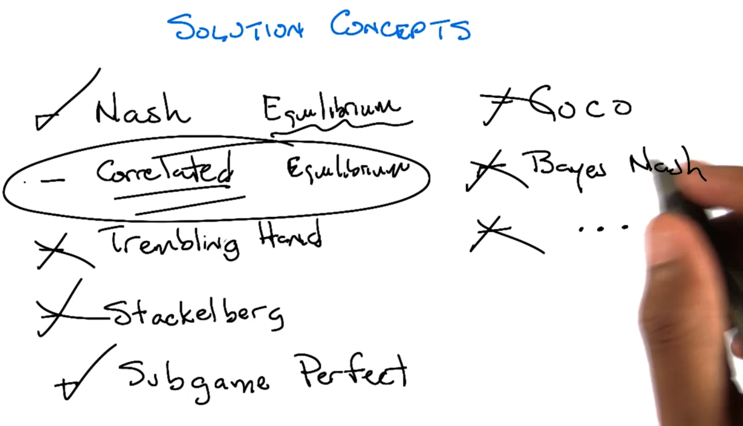 SOLUTION CONCEPTS
Nash Equilibrium
Correlated Equilibrium
Trembling Hand
Stackelberg
Subgame Perfect
Coco
Bayes Nash
...